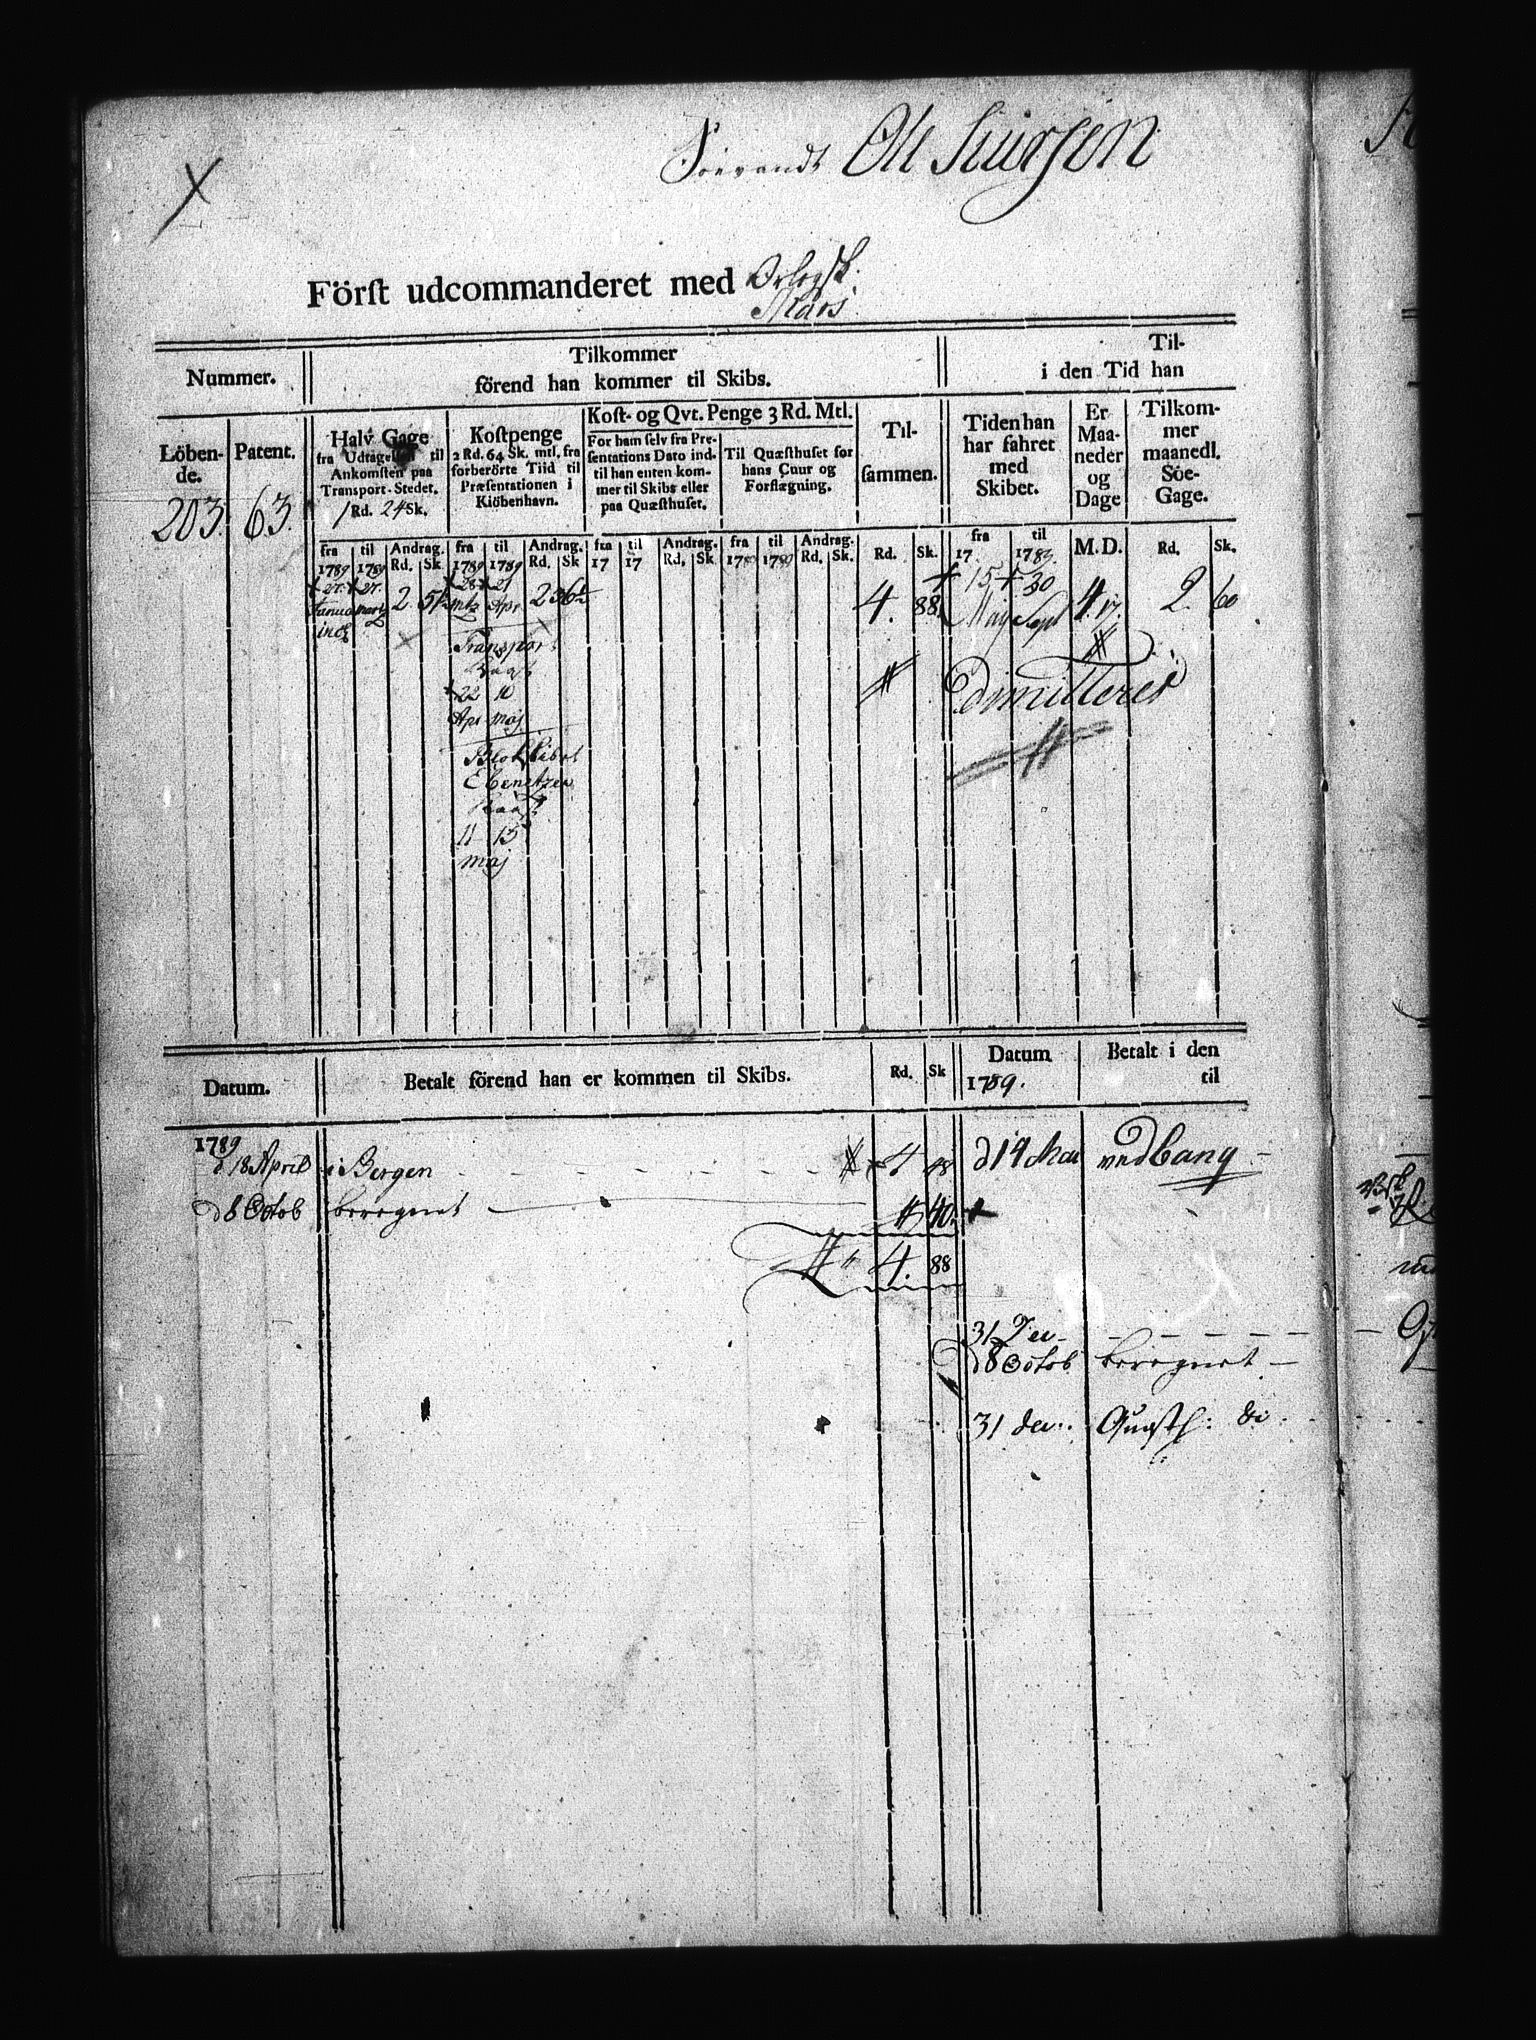 Söevandt Ole Siursen
Först udcommanderet med Orlogsk.
Mars.
Nummer.
Tilkommer
förend han kommer til Skibs.
Til-
i den Tid han
Löben-
de.
Patent.
Halv Gage
fra Udtagelsen til
Ankomsten paa
Transport-Stedet.
1 Rd. 24 Sk.
Kostpenge
2 Rd. 64 Sk. mtl. fra
forberörte Tiid til
Præsentationen i
Kiöbenhavn.
Kost- og Qvt. Penge 3 Rd. Mtl.
For ham selv fra Pre-
sentations Dato ind-
til han enten kom-
mer til Skibs eller
paa Quæsthuset.
Til Quæsthuset for
hans Cuur og
Forflægning.
Til-
sammen.
Tiden han
har fahret
med
Skibet.
Er
Maa-
neder
og
Dage
Tilkom-
mer
maanedl.
Söe-
Gage.
203. 63.
fra til Andrag. fra til Andrag. fra til Andrag. fra til Andrag. Rd. Sk. fra til M. D. Rd. Sk.
1789 1789 Rd. Sk. 1789 1789 Rd. Sk 17 17 Rd. Sk. 1789 1789 Rd. Sk. 17 1789.
27. 27. 28 21 15 30
Janua Martz 2. Mtz Apr 2 4. 88. May Sept 4. 17. 2. 60
incl
Transpor
22 10
Apr Maj
dimitteret
Blokskibet
Ebenetzer
11 15
Maj
Datum.
Betalt förend han er kommen til Skibs.
Rd. Sk
Datum
1789.
Betalt i den
til
1789
d 18 April i Bergen 4 48 d 14 Mai ved Cang
d 8 Octob beregnet 40.
4. 88
31 Dec
d 8 Octob beregnet
31 dec. Quæsth: